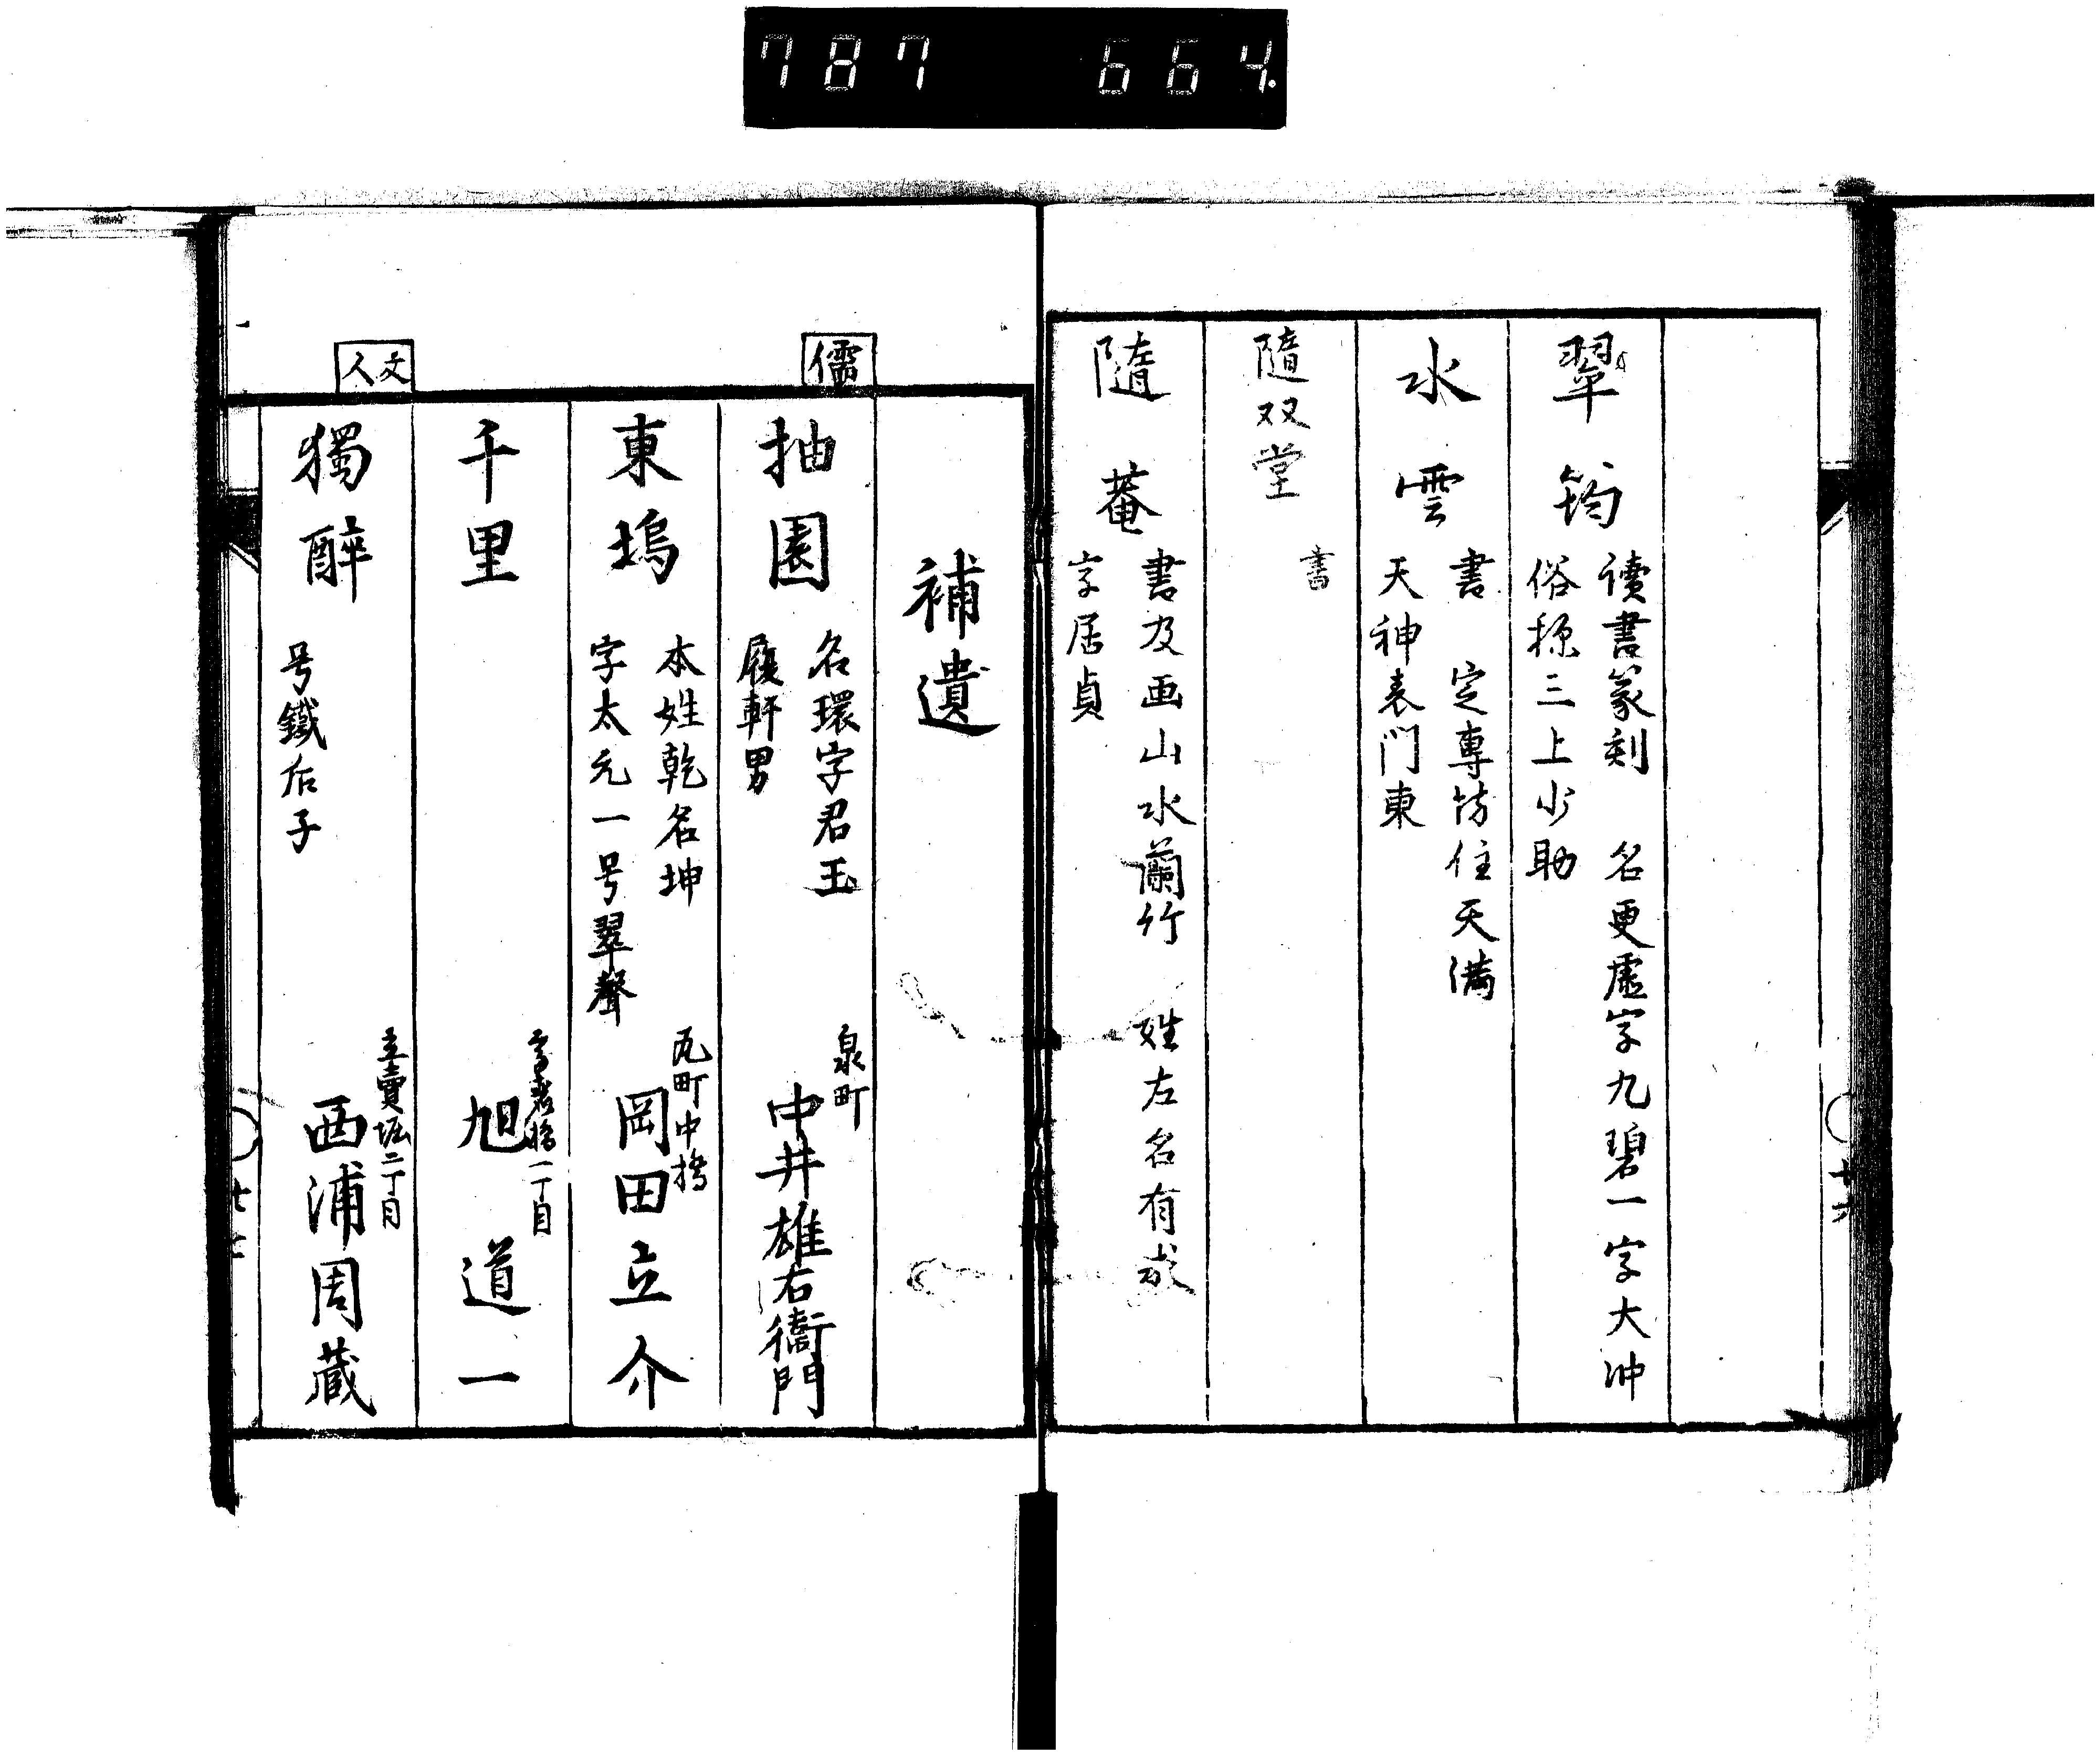 787 664
翠筠
读書篆刻 名更虛字九碧一字大冲
俗称三上少助
水雲
書 定専坊住天満
天神表门東
隨双堂
書
隨菴
書及画山水蘭竹 姓左名有成
字居貞
廿六
補遺
儒
抽園
名環字君玉
履軒男
泉町
中井雄右衞門
東塢
本姓乾名坤
字太元一号翠聲
瓦町中橋
岡田立介
千里
一丁目
旭道一
文人
獨醉
号鐵后子
立賣堀二丁目
西浦周藏
廿七